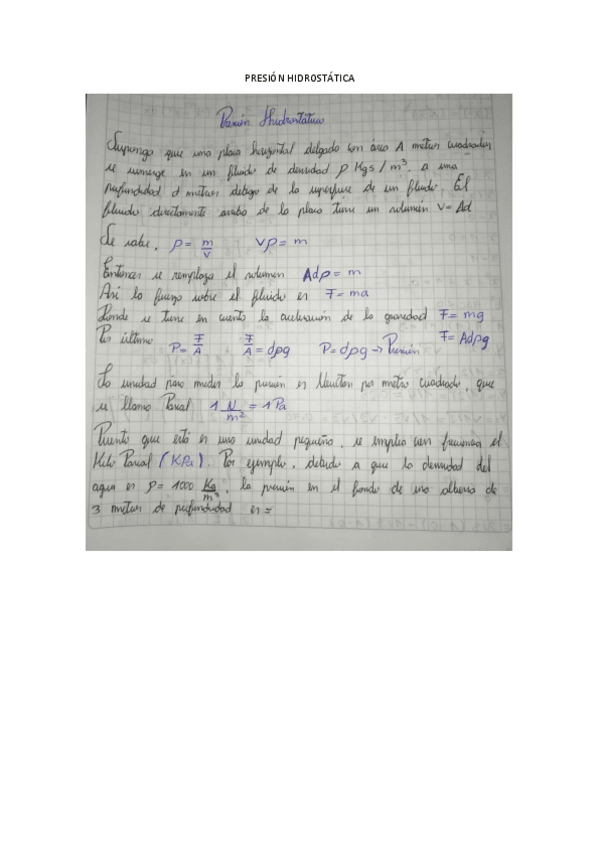 PRESIÓN HIDROSTÁTICA
Presión Hidrostática
Suponga que una placa horizontal delgada con área A metros cuadrados
se sumerge en un fluido de densidad ρ Kgs/m³ a una
profundidad d metros debajo de la superficie de un fluido. El
fluido directamente arriba de la placa tiene un volumen V= Ad
Se sabe, ρ= m/v Vρ= m
Entonces se remplaza el volumen Adρ= m
Así la fuerza sobre el fluido es F= ma
Donde se tiene en cuenta la aceleración de la gravedad F= mg
Por último P= F/A F/A = dρg P= dρg → Presión F= Adρg
La unidad para medir la presión es Newton por metro cuadrado, que
se llama Pascal 1 N/m² = 1 Pa
Puesto que esta es una unidad pequeña, se emplea con frecuencia el
Kilo Pascal (KPa). Por ejemplo, debido a que la densidad del
agua es ρ= 1000 Kg/m³, la presión en el fondo de una alberca de
3 metros de profundidad es =